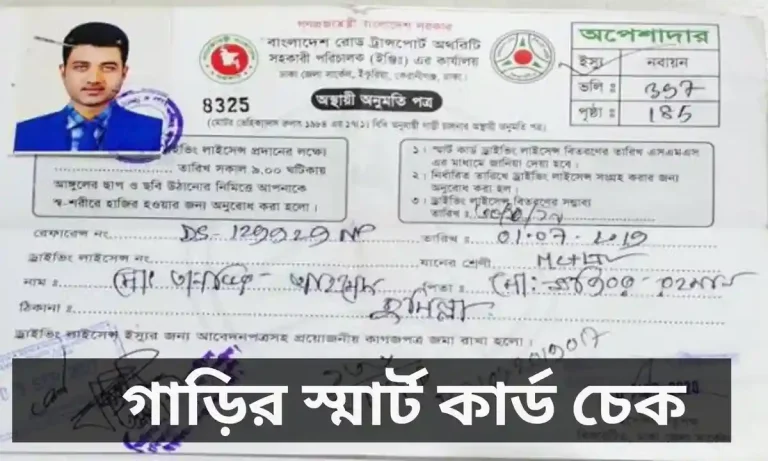 গণপ্রজাতন্ত্রী বাংলাদেশ সরকার
বাংলাদেশ রোড ট্রান্সপোর্ট অথরিটি
সহকারী পরিচালক (ইঞ্জিঃ) এর কার্যালয়
ঢাকা জেলা সার্কেল, ইকুরিয়া, কেরানীগঞ্জ, ঢাকা।
8325
অস্থায়ী অনুমতি পত্র
অপেশাদার
ইস্যু নবায়ন
ভলি ঃ 397
পৃষ্ঠা ঃ 185
ড্রাইভিং লাইসেন্স প্রদানের লক্ষ্যে
তারিখ সকাল ৯.০০ ঘটিকায়
আঙ্গুলের ছাপ ও ছবি উঠানোর নিমিত্তে আপনাকে
স্ব-শরীরে হাজির হওয়ার জন্য অনুরোধ করা হলো।
১। স্মার্ট কার্ড ড্রাইভিং লাইসেন্স বিতরণের তারিখ এসএমএস
এর মাধ্যমে জানিয়া দেয়া হবে।
২। নির্ধারিত তারিখে ড্রাইভিং লাইসেন্স সংগ্রহ করার জন্য
অনুরোধ করা হল।
৩। ড্রাইভিং লাইসেন্স বিতরণের সম্ভাব্য
তারিখ ঃ
রেফারেন্স নং DS-129929 NP তারিখ ঃ 01.07.2019
ড্রাইভিং লাইসেন্স নং যানের শ্রেণী
নাম ঃ মোঃ আহমেদ পিতা ঃ মোঃ রহমান
ঠিকানা ঃ কুমিল্লা
ড্রাইভিং লাইসেন্স ইস্যুর জন্য আবেদনপত্রসহ প্রয়োজনীয় কাগজপত্র জমা রাখা হলো।
গাড়ির স্মার্ট কার্ড চেক